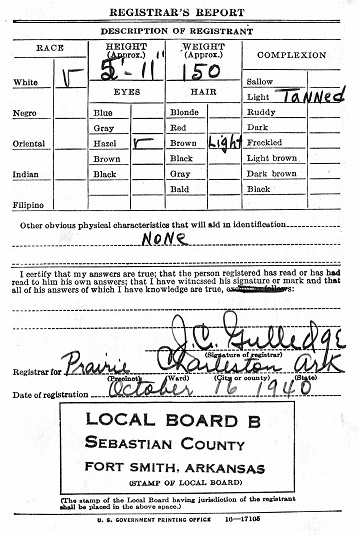 REGISTRAR'S REPORT
DESCRIPTION OF REGISTRANT
RACE
HEIGHT (Approx.) 5'-11"
WEIGHT (Approx.) 150
COMPLEXION
White ✓
EYES
HAIR
Sallow
Light Tanned
Negro
Blue
Blonde
Ruddy
Gray
Red
Dark
Oriental
Hazel ✓
Brown Light
Freckled
Brown
Black
Light brown
Indian
Black
Gray
Dark brown
Bald
Black
Filipino
Other obvious physical characteristics that will aid in identification
NONE
I certify that my answers are true; that the person registered has read or has had
read to him his own answers; that I have witnessed his signature or mark and that
all of his answers of which I have knowledge are true, except as follows:
J.C. Gulledge
(Signature of registrar)
Registrar for Prairie Charleston Ark
(Precinct) (Ward) (City or county) (State)
Date of registration October 16 1940
LOCAL BOARD B
SEBASTIAN COUNTY
FORT SMITH, ARKANSAS
(STAMP OF LOCAL BOARD)
(The stamp of the Local Board having jurisdiction of the registrant
shall be placed in the above space.)
U. S. GOVERNMENT PRINTING OFFICE 16—17105